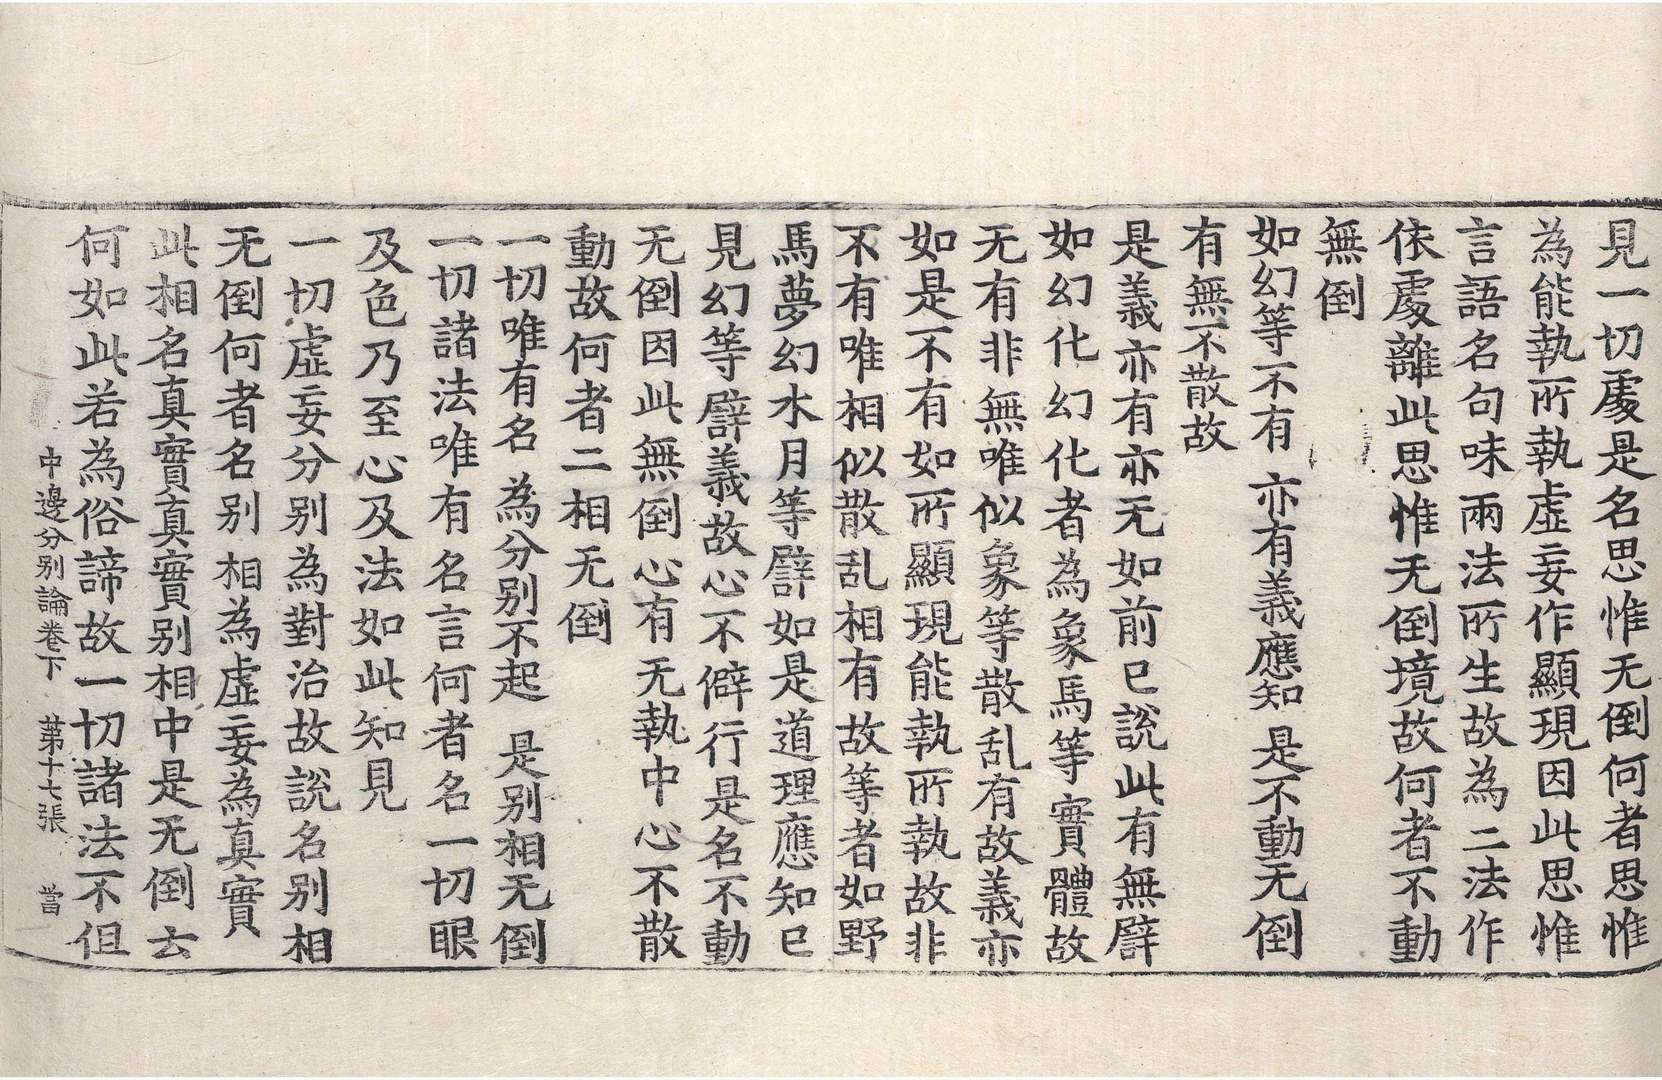 見一切處是名思惟无倒何者思惟
為能執所執虛妄作顯現因此思惟
言語名句味兩法所生故為二法作
依處離此思惟无倒境故何者不動
無倒
如幻等不有 亦有義應知 是不動无倒
有無不散故
是義亦有亦无如前已說此有無譬
如幻化幻化者為象馬等實體故
无有非無唯似象等散乱有故義亦
如是不有如所顯現能執所執故非
不有唯相似散乱相有故等者如野
馬夢幻水月等譬如是道理應知已
見幻等譬義故心不僻行是名不動
无倒因此無倒心有无執中心不散
動故何者二相无倒
一切唯有名 為分别不起 是别相无倒
一切諸法唯有名言何者名一切眼
及色乃至心及法如此知見
一切虛妄分别為對治故說名别相
无倒何者名别相為虛妄為真實
此相名真實真實别相中是无倒云
何如此若為俗諦故一切諸法不但
中邊分别論卷下 苐十七張 當